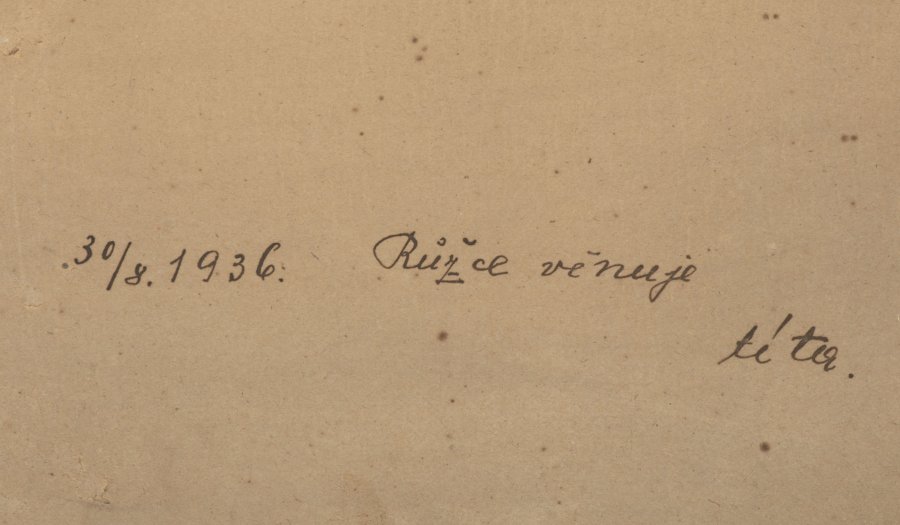 30/8. 1936. Růžce věnuje
téta.